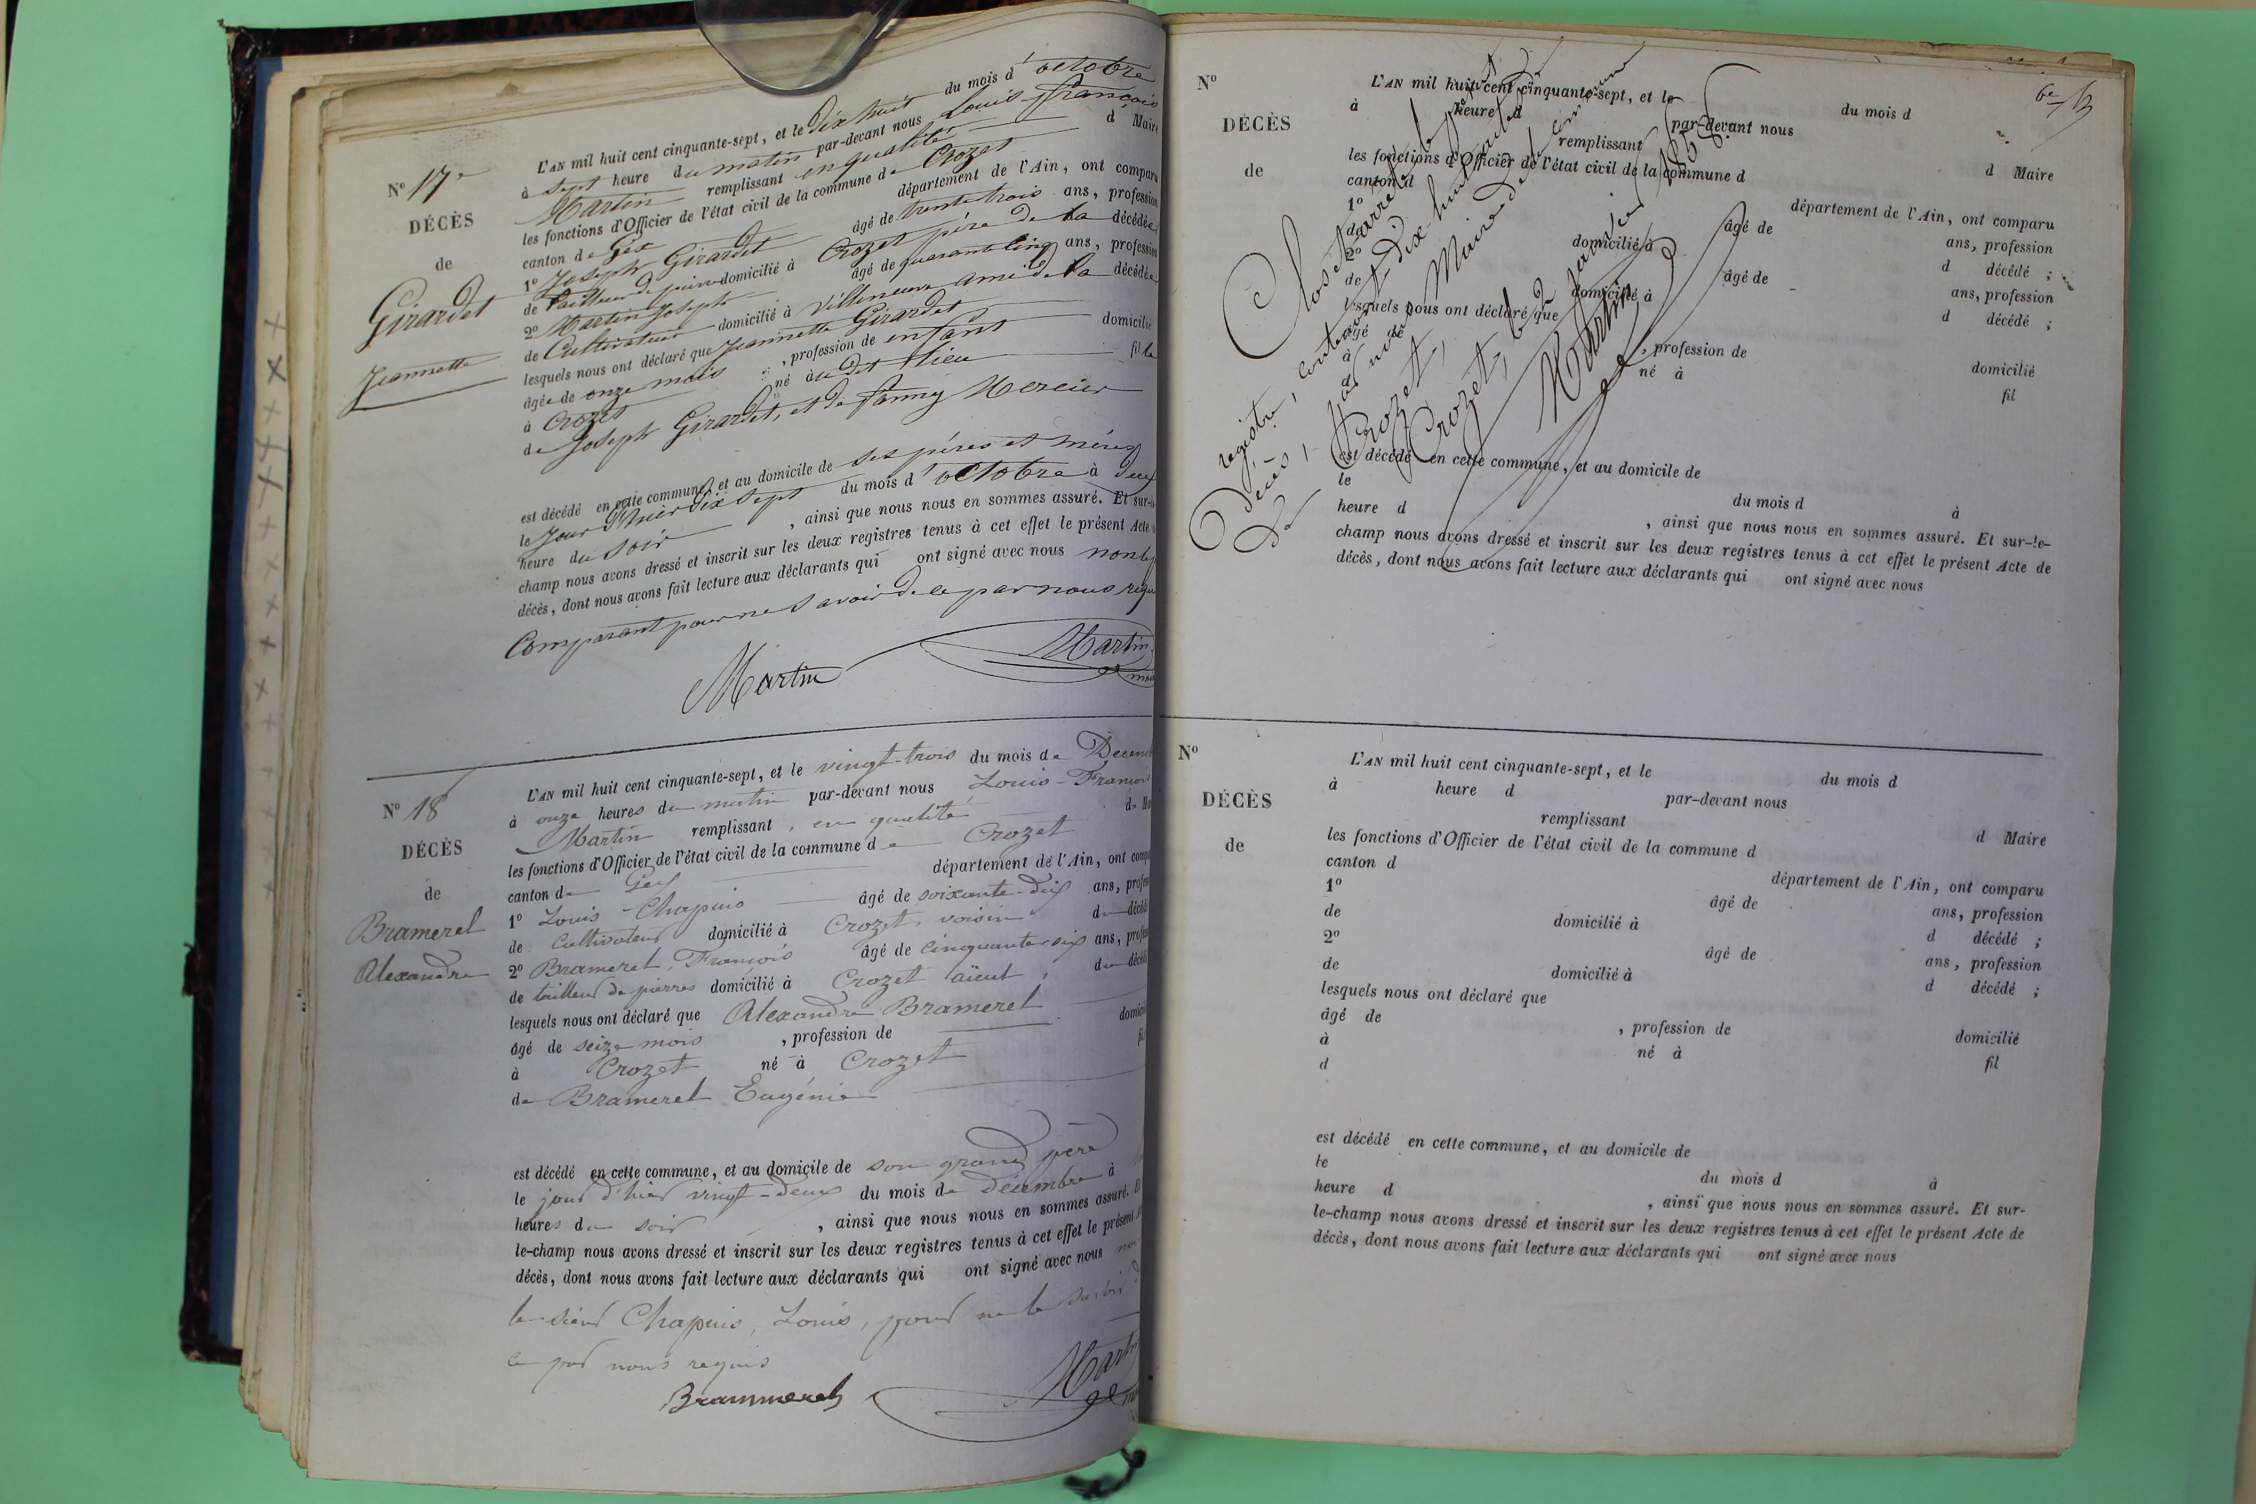 N° 17e
DÉCÈS
de
Girardet
Jeannette
L'AN mil huit cent cinquante-sept, et le dix huit du mois d'octobre
à sept heure du matin par-devant nous Louis françois
Martin remplissant en qualité d Maire
les fonctions d'Officier de l'état civil de la commune de Crozet
canton de Gex département de l'Ain, ont comparu
1° Joseph Girardet âgé de trente trois ans, profession
de tailleur de pierre domicilié à Crozet père de la décédée
2° Martin Joseph âgé de quarante cinq ans, profession
de Cultivateur domicilié à Villeneuve ami de la décédée
lesquels nous ont déclaré que Jeannette Girardet
âgée de onze mois, profession de enfant domicilié
à Crozet né au dit lieu fille
de Joseph Girardet, et de fanny Mercier
est décédé en cette commune, et au domicile de ses pères et mères
le jour d'hier dix sept du mois d'octobre à deux
heure du soir, ainsi que nous nous en sommes assuré. Et sur-le-
champ nous avons dressé et inscrit sur les deux registres tenus à cet effet le présent Acte
décès, dont nous avons fait lecture aux déclarants qui ont signé avec nous non le
Comparant pour ne savoir de ce par nous requis
Martin Martin
N° 18
DÉCÈS
de
Brameret
Alexandre
L'AN mil huit cent cinquante-sept, et le vingt-trois du mois de Décem
à onze heures du matin par-devant nous Louis-François
Martin remplissant, en qualité de
les fonctions d'Officier de l'état civil de la commune de Crozet
canton de Gex département de l'Ain, ont comp
1° Louis-Chapuis âgé de soixante-dix ans, profes
de cultivateur domicilié à Crozet, voisin du décéd
2° Brameret, François âgé de cinquante-six ans, profes
de tailleur de pierres domicilié à Crozet aïeul, du décéd
lesquels nous ont déclaré que Alexandre Brameret
âgé de seize mois, profession de domici
à Crozet né à Crozet fil
de Brameret Eugénie
est décédé en cette commune, et au domicile de son grand père
le jour d'hier vingt-deux du mois de décembre à
heures du soir, ainsi que nous nous en sommes assuré. Et
le-champ nous avons dressé et inscrit sur les deux registres tenus à cet effet le présent
décès, dont nous avons fait lecture aux déclarants qui ont signé avec nous non
le sieur Chapuis, Louis, pour ne le savoir de
ce par nous requis
Brammerel Martin
6e
N°
DÉCÈS
de
L'AN mil huit cent cinquante-sept, et le du mois d
à heure d par-devant nous
remplissant d Maire
les fonctions d'Officier de l'état civil de la commune d
canton d département de l'Ain, ont comparu
1° âgé de ans, profession
de domicilié à d décédé ;
2° âgé de ans, profession
de domicilié à d décédé ;
lesquels nous ont déclaré que
âgé de , profession de domicilié
à né à fil
d
est décédé en cette commune, et au domicile de
le du mois d à
heure d , ainsi que nous nous en sommes assuré. Et sur-le-
champ nous avons dressé et inscrit sur les deux registres tenus à cet effet le présent Acte de
décès, dont nous avons fait lecture aux déclarants qui ont signé avec nous
Clos et arrêté le présent
registre, contenant dix huit actes de
décès, par nous Maire de la commune
de Crozet,
Crozet, le 2 janvier 1858.
Martin
N°
DÉCÈS
de
L'AN mil huit cent cinquante-sept, et le du mois d
à heure d par-devant nous
remplissant d Maire
les fonctions d'Officier de l'état civil de la commune d
canton d département de l'Ain, ont comparu
1° âgé de ans, profession
de domicilié à d décédé ;
2° âgé de ans, profession
de domicilié à d décédé ;
lesquels nous ont déclaré que
âgé de , profession de domicilié
à né à fil
d
est décédé en cette commune, et au domicile de
le du mois d à
heure d , ainsi que nous nous en sommes assuré. Et sur-
le-champ nous avons dressé et inscrit sur les deux registres tenus à cet effet le présent Acte de
décès, dont nous avons fait lecture aux déclarants qui ont signé avec nous